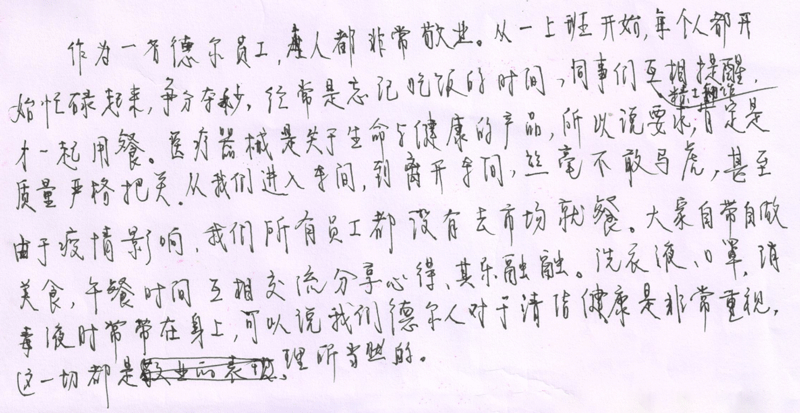 作为一名德尔员工，人人都非常敬业。从一上班开始，每个人都开
始忙碌起来，争分夺秒，经常是忘记吃饭的时间，同事们互相提醒，
才一起用餐。医疗器械是关于生命与健康的产品，所以说要求精工细作肯定是
质量严格把关。从我们进入车间，到离开车间，丝毫不敢马虎，甚至
由于疫情影响，我们所有员工都没有去市场就餐。大家自带自做
美食，午餐时间互相交流分享心得、其乐融融。洗衣液、口罩，消
毒液时常带在身上，可以说我们德尔人对于清洁健康是非常重视，
这一切都是理所当然的。